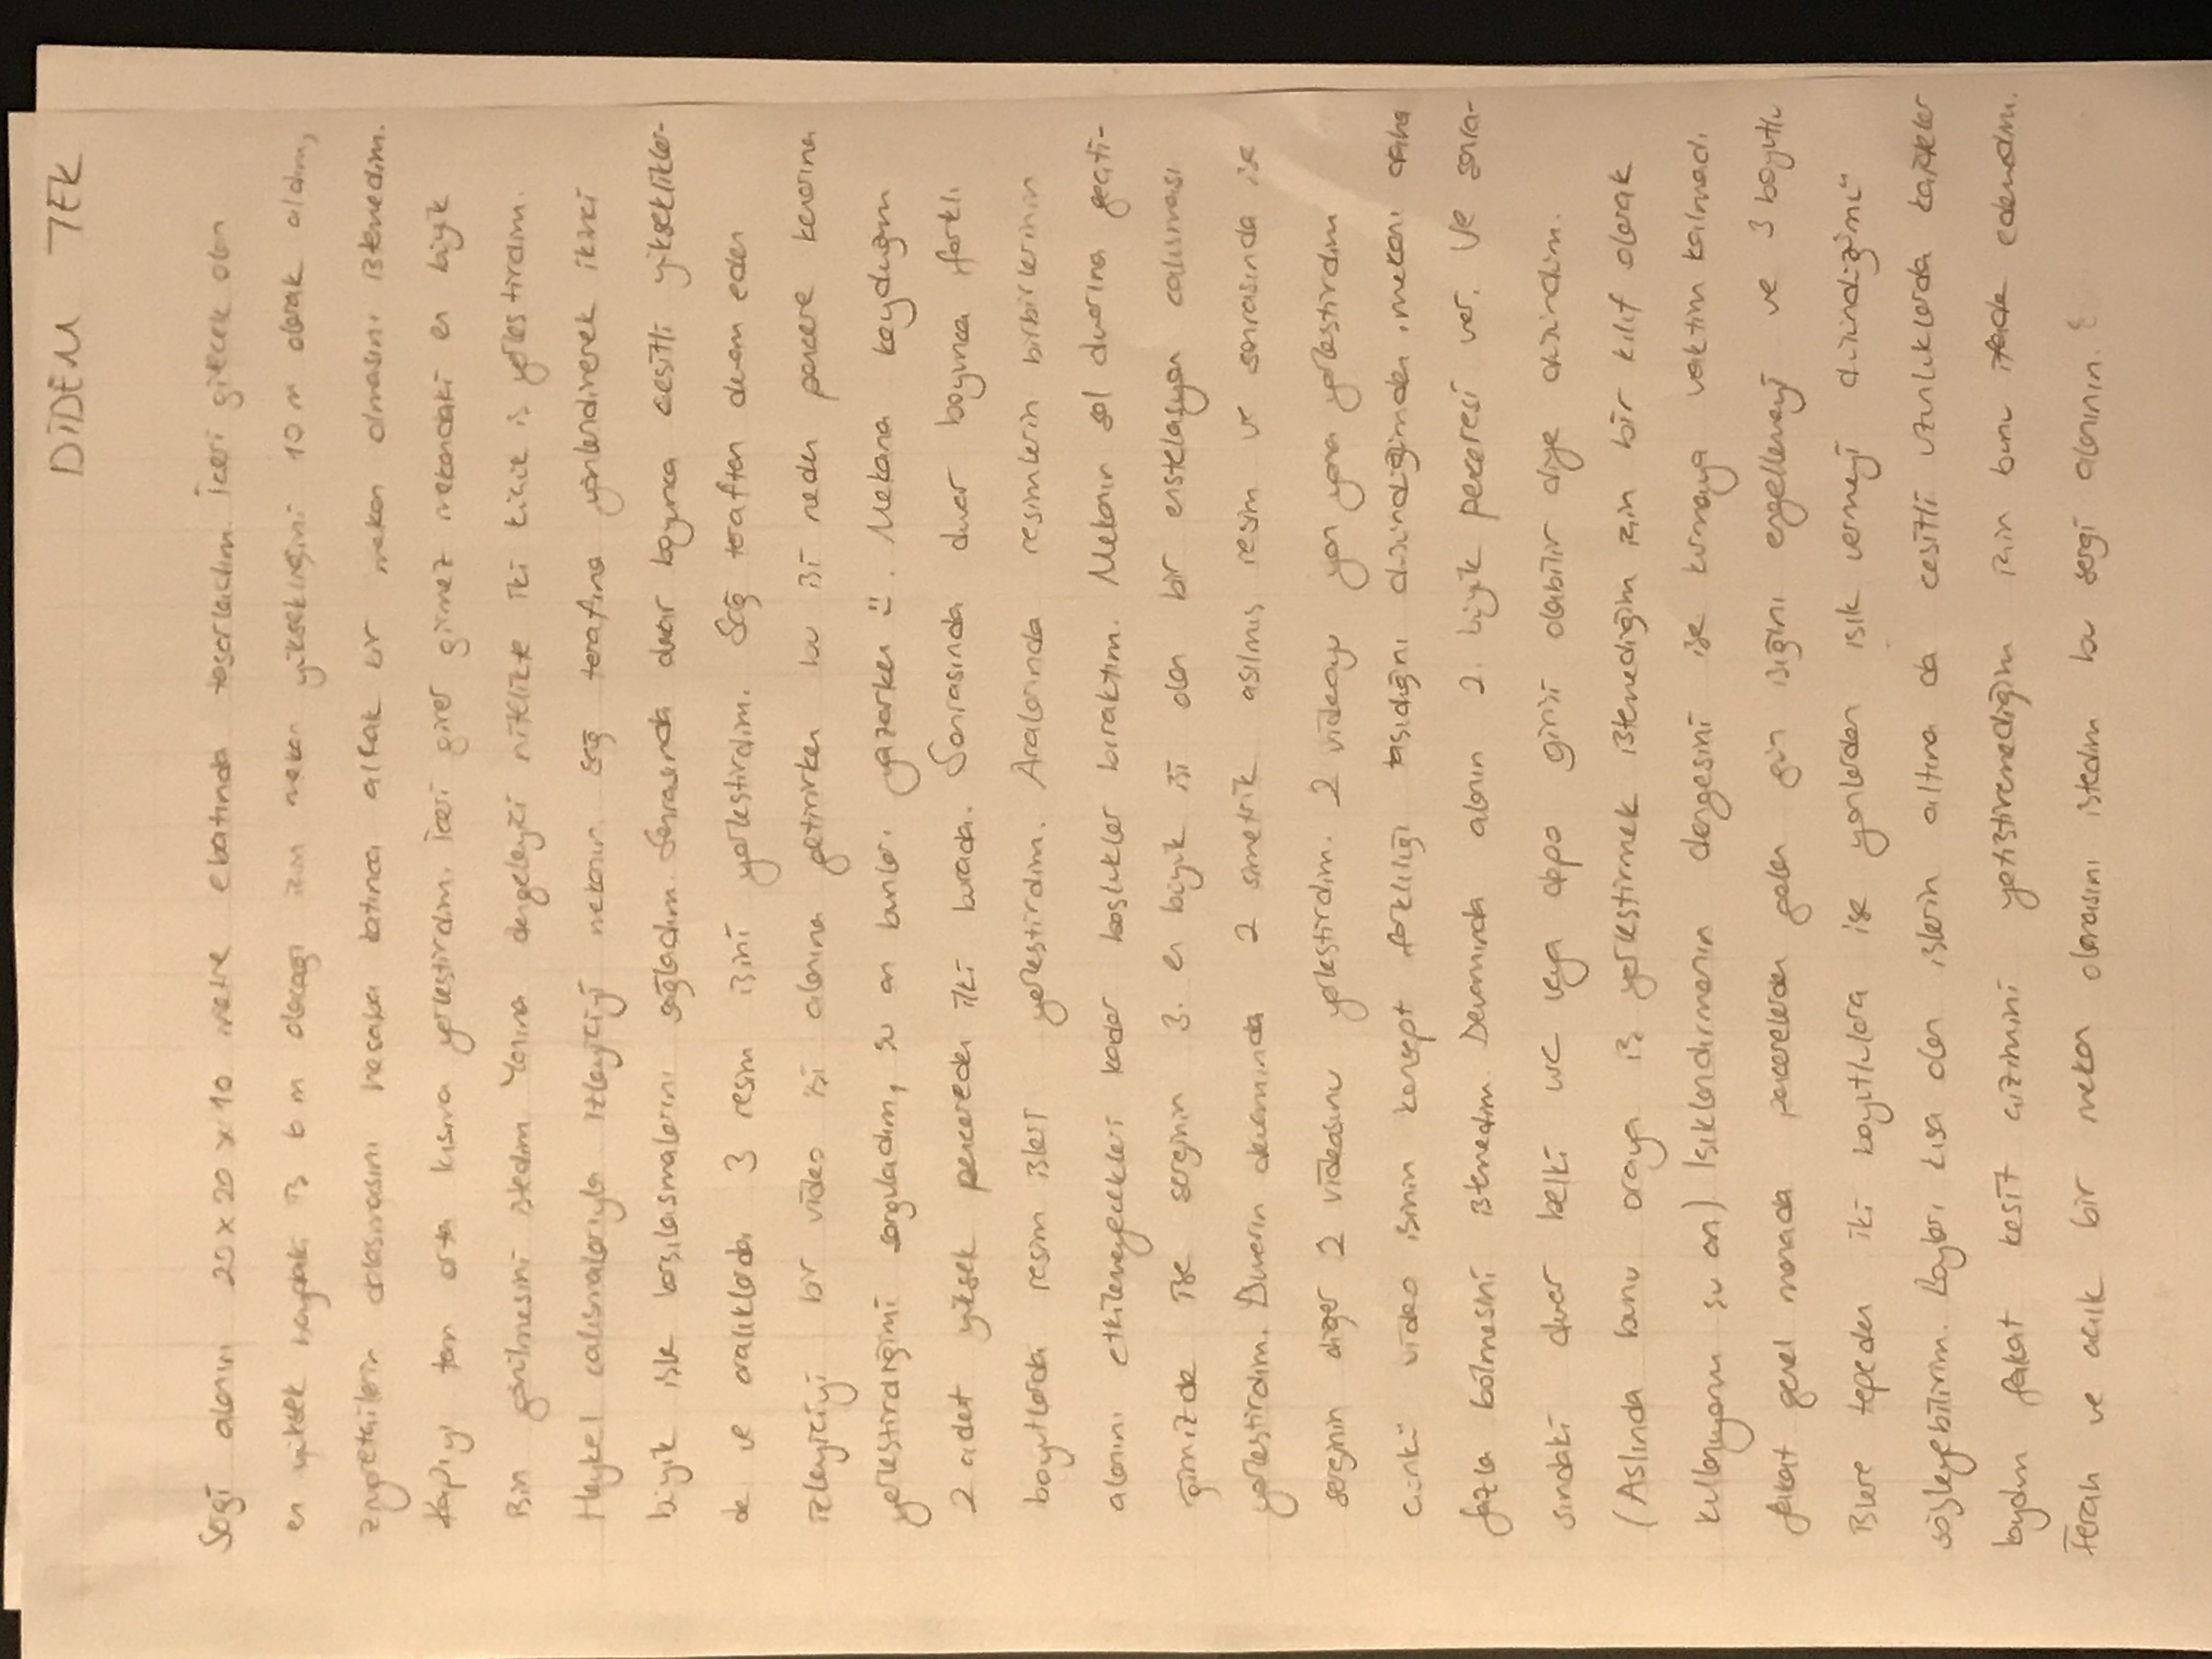 DİDEM TEK
Sergi alanını 20 x 20 x 10 metre ebatında tasarladım. İçeri girecek olan
en yüksek boydaki iş 6 m olacağı için mekan yüksekliğini 10 m olarak aldım,
ziyaretçilerin dolaşmasını hesaba katınca alçak bir mekan olmasını istemedim.
Kapıyı tam orta kısma yerleştirdim. İçeri girer girmez mekandaki en büyük
işin görülmesini istedim Yanına dengeleyici nitelikte iki küçük iş yerleştirdim.
Heykel çalışmalarıyla izleyiciyi mekanın sağ tarafına yönlendirerek ikinci
büyük işle karşılaşmalarını sağladım. Sonrasında duvar boyunca çeşitli yükseklikler-
de ve aralıklarda 3 resim işini yerleştirdim. Sağ taraftan devam eden
izleyiciyi bir video işi alanına getirirken bu işi neden pencere kenarına
yerleştirdiğimi sorguladım, şu an bunları yazarken ü. Mekana koyduğum
2 adet yüksek pencereden ilki burada. Sonrasında duvar boyunca farklı
boyutlarda resim işleri yerleştirdim. Aralarında resimlerin birbirlerinin
alanını etkilemeyecekleri kadar boşluklar bıraktım. Mekanın sol duvarına geçti-
ğimizde ise serginin 3. en büyük işi olan bir enstelasyon çalışması
yerleştirdim. Duvarın devamında 2 simetrik asılmış resim ve sonrasında ise
serginin diğer 2 videosunu yerleştirdim. 2 videoyu yan yana yerleştirdim
çünkü video işinin konsept farklılığı taşıdığını düşündüğümden, mekanı daha
fazla bölmesini istemedim. Devamında alanın 2. büyük penceresi var. Ve sonra-
sındaki duvar belki wc veya depo girişi olabilir diye düşündüm.
(Aslında bunu oraya iş yerleştirmek istemediğim için bir kılıf olarak
kullanıyorum şu an) Işıklandırmanın dengesini ise kurmaya vaktim kalmadı
fakat genel manada pencerelerden gelen gün ışığını engellemeyi ve 3 boyutlu
işlere tepeden iki boyutlulara ise yanlardan ışık vermeyi düşündüğümü
söyleyebilirim. Boyları kısa olan işlerin altına da çeşitli uzunluklarda kaideler
koydum fakat kesit çizimini yetiştiremediğim için bunu ifade edemedim.
Ferah ve açık bir mekan olmasını istedim bu sergi alanının.